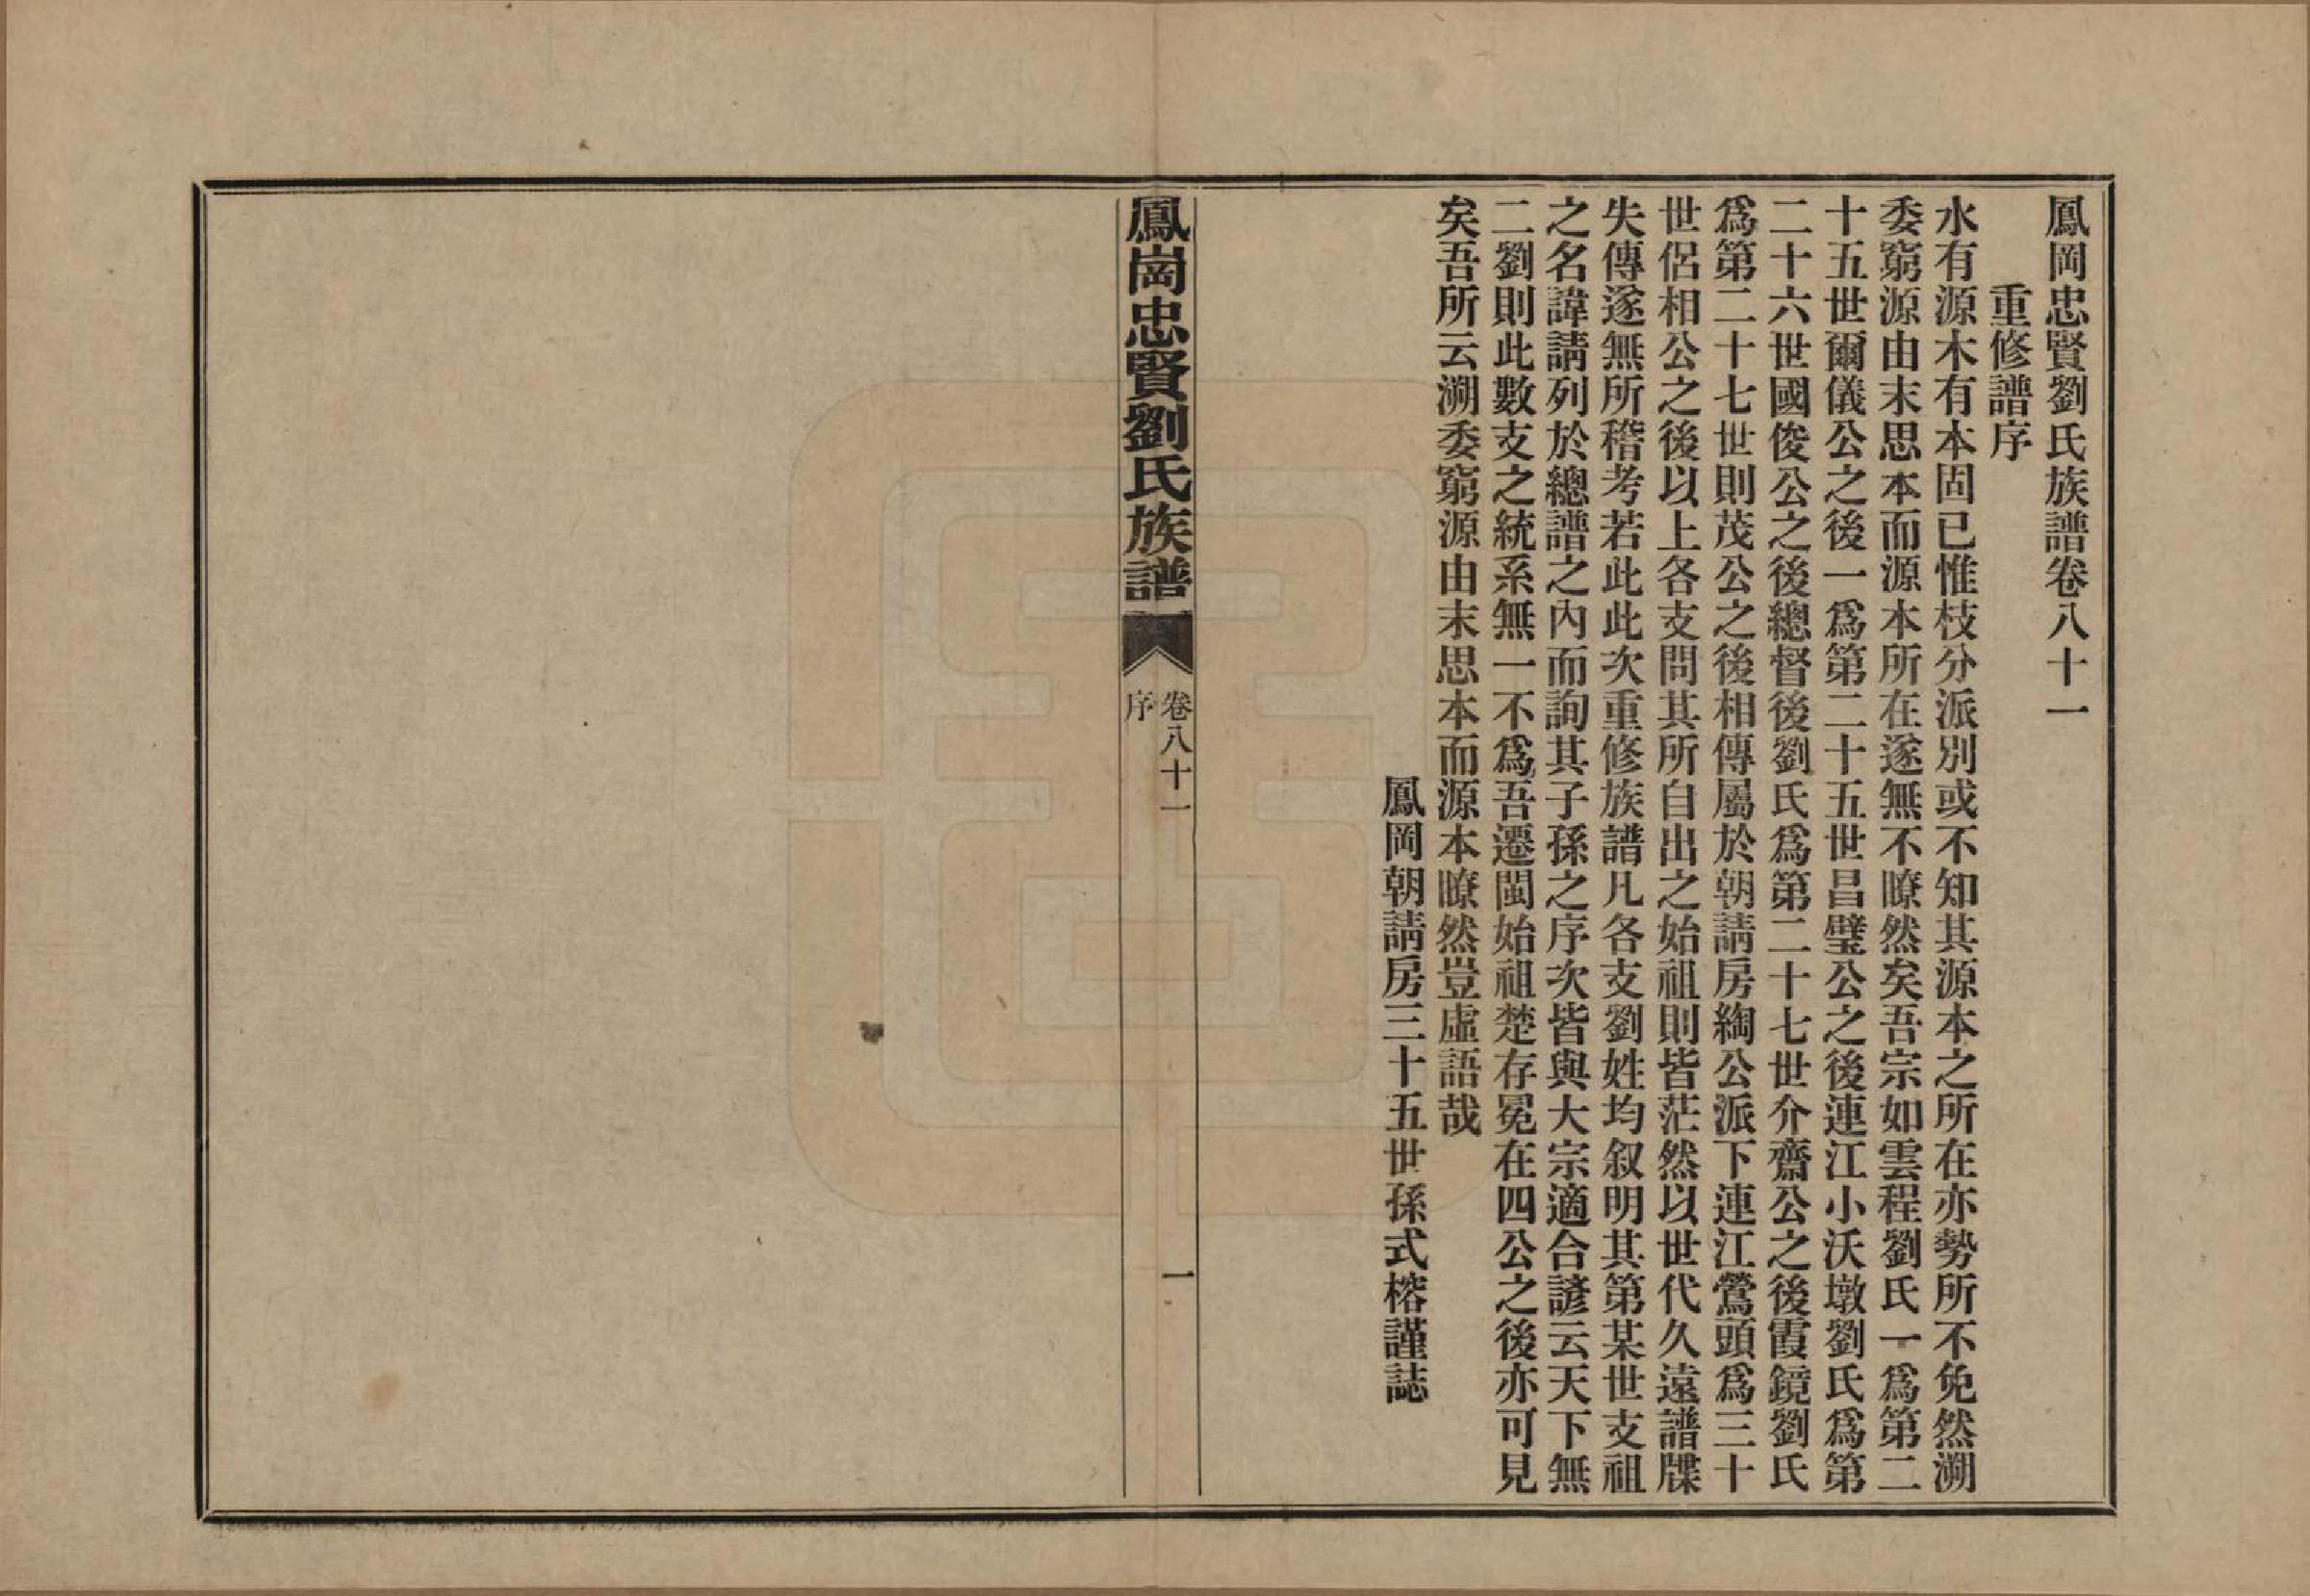 鳳岡忠賢劉氏族譜卷八十一
重修譜序
水有源木有本固已惟枝分派別或不知其源本之所在亦勢所不免然溯
委窮源由末思本而源本所在遂無不瞭然矣吾宗如雲程劉氏一爲第二
十五世爾儀公之後一爲第二十五世昌璧公之後連江小沃墩劉氏爲第
二十六世國俊公之後總督後劉氏爲第二十七世介齋公之後霞鏡劉氏
爲第二十七世則茂公之後相傳屬於朝請房綯公派下連江鶯頭爲三十
世侶相公之後以上各支問其所自出之始祖則皆茫然以世代久遠譜牒
失傳遂無所稽考若此此次重修族譜凡各支劉姓均叙明其第某世支祖
之名諱請列於總譜之內而詢其子孫之序次皆與大宗適合諺云天下無
二劉則此數支之統系無一不爲吾遷閩始祖楚存冕在四公之後亦可見
矣吾所云溯委窮源由末思本而源本瞭然豈虛語哉
鳳岡朝請房三十五世孫式榕謹誌
鳳崗忠賢劉氏族譜
卷八十一
序
一